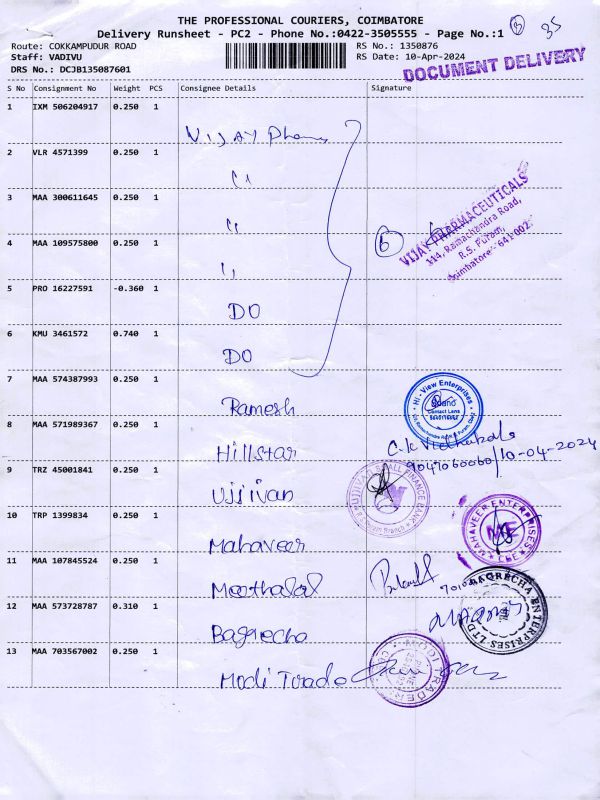 THE PROFESSIONAL COURIERS, COIMBATORE
Delivery Runsheet - PC2 - Phone No.:0422-3505555 - Page No.:1
35
Route: COKKAMPUDUR ROAD
RS No.: 1350876
Staff: VADIVU
RS Date: 10-Apr-2024
DRS No.: DCJB135087601
DOCUMENT DELIVERY
S No Consignment No Weight PCS Consignee Details Signature
1 IXM 506204917 0.250 1
VIJAY Pharma
2 VLR 4571399 0.250 1
3 MAA 300611645 0.250 1
4 MAA 109575800 0.250 1
6
VIJAY PHARMACEUTICALS
114, Ramachandra Road,
R.S. Puram,
Coimbatore - 641 002.
5 PRO 16227591 -0.360 1
DO
6 KMU 3461572 0.740 1
DO
7 MAA 574387993 0.250 1
Ramesh
Hi - View Enterprises
Contact Lens
8 MAA 571989367 0.250 1
Hillstar
9047060060/10-04-2024
9 TRZ 45001841 0.250 1
Ujjivan
UJJIVAN SMALL FINANCE BANK
10 TRP 1399834 0.250 1
Mahaveer
MAHAVEER ENTERPRISES
ME
CBE
11 MAA 107845524 0.250 1
12 MAA 573728787 0.310 1
Bagrecha
BAGRECHA ENTERPRISES LTD
13 MAA 703567002 0.250 1
Modi Trade
MODI TRADERS